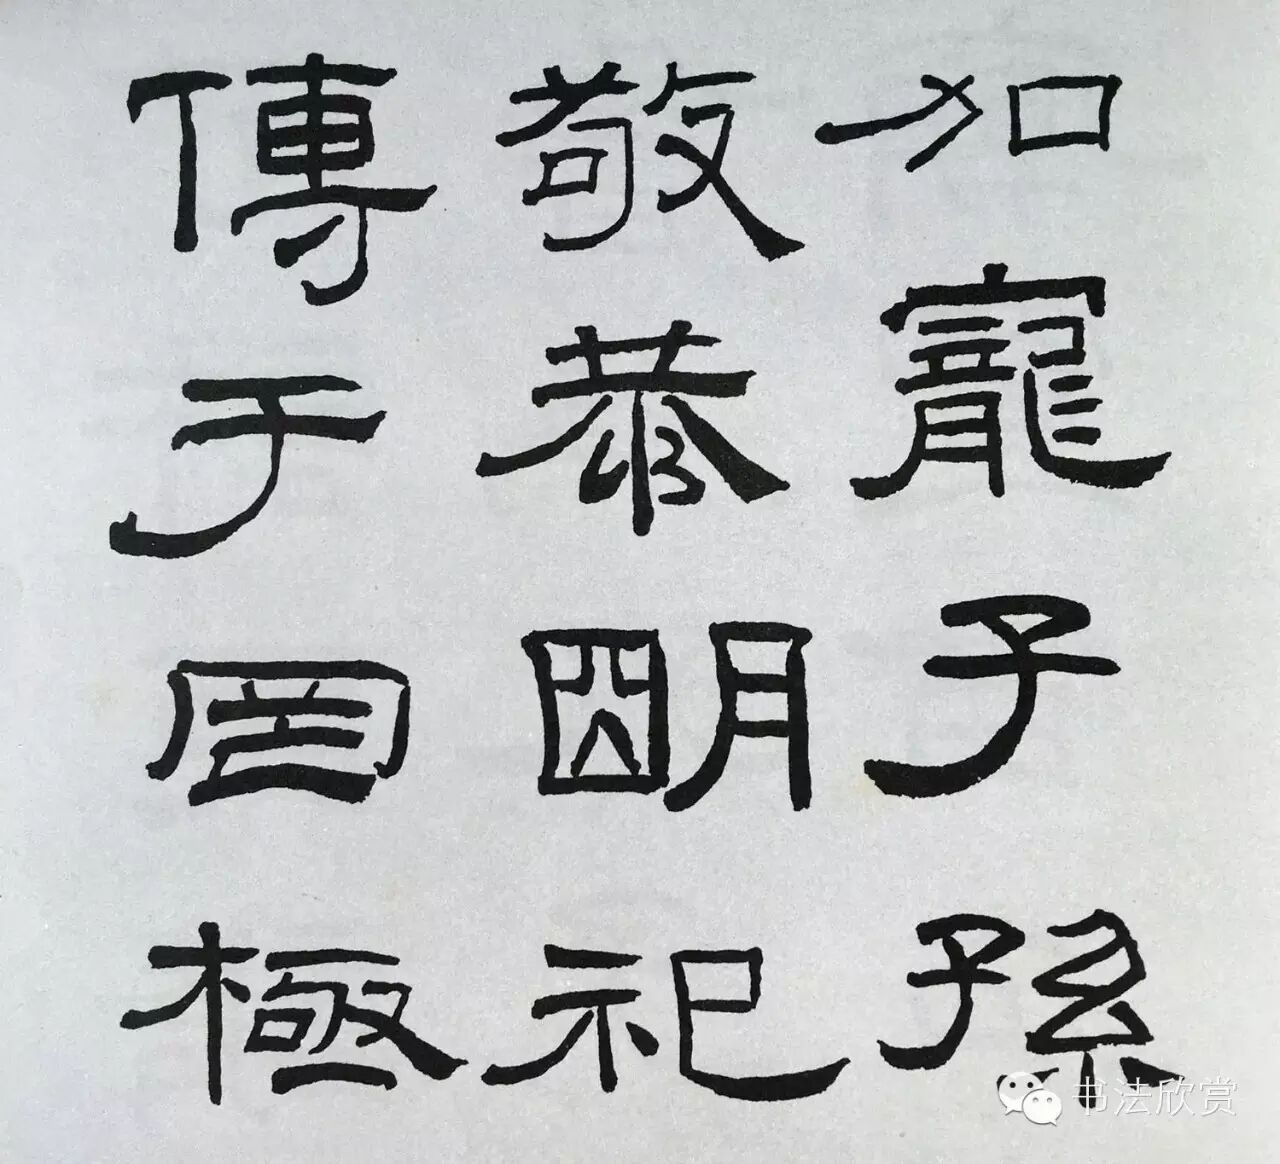 加寵子孫
敬恭朙祀
傳于罔極
书法欣赏